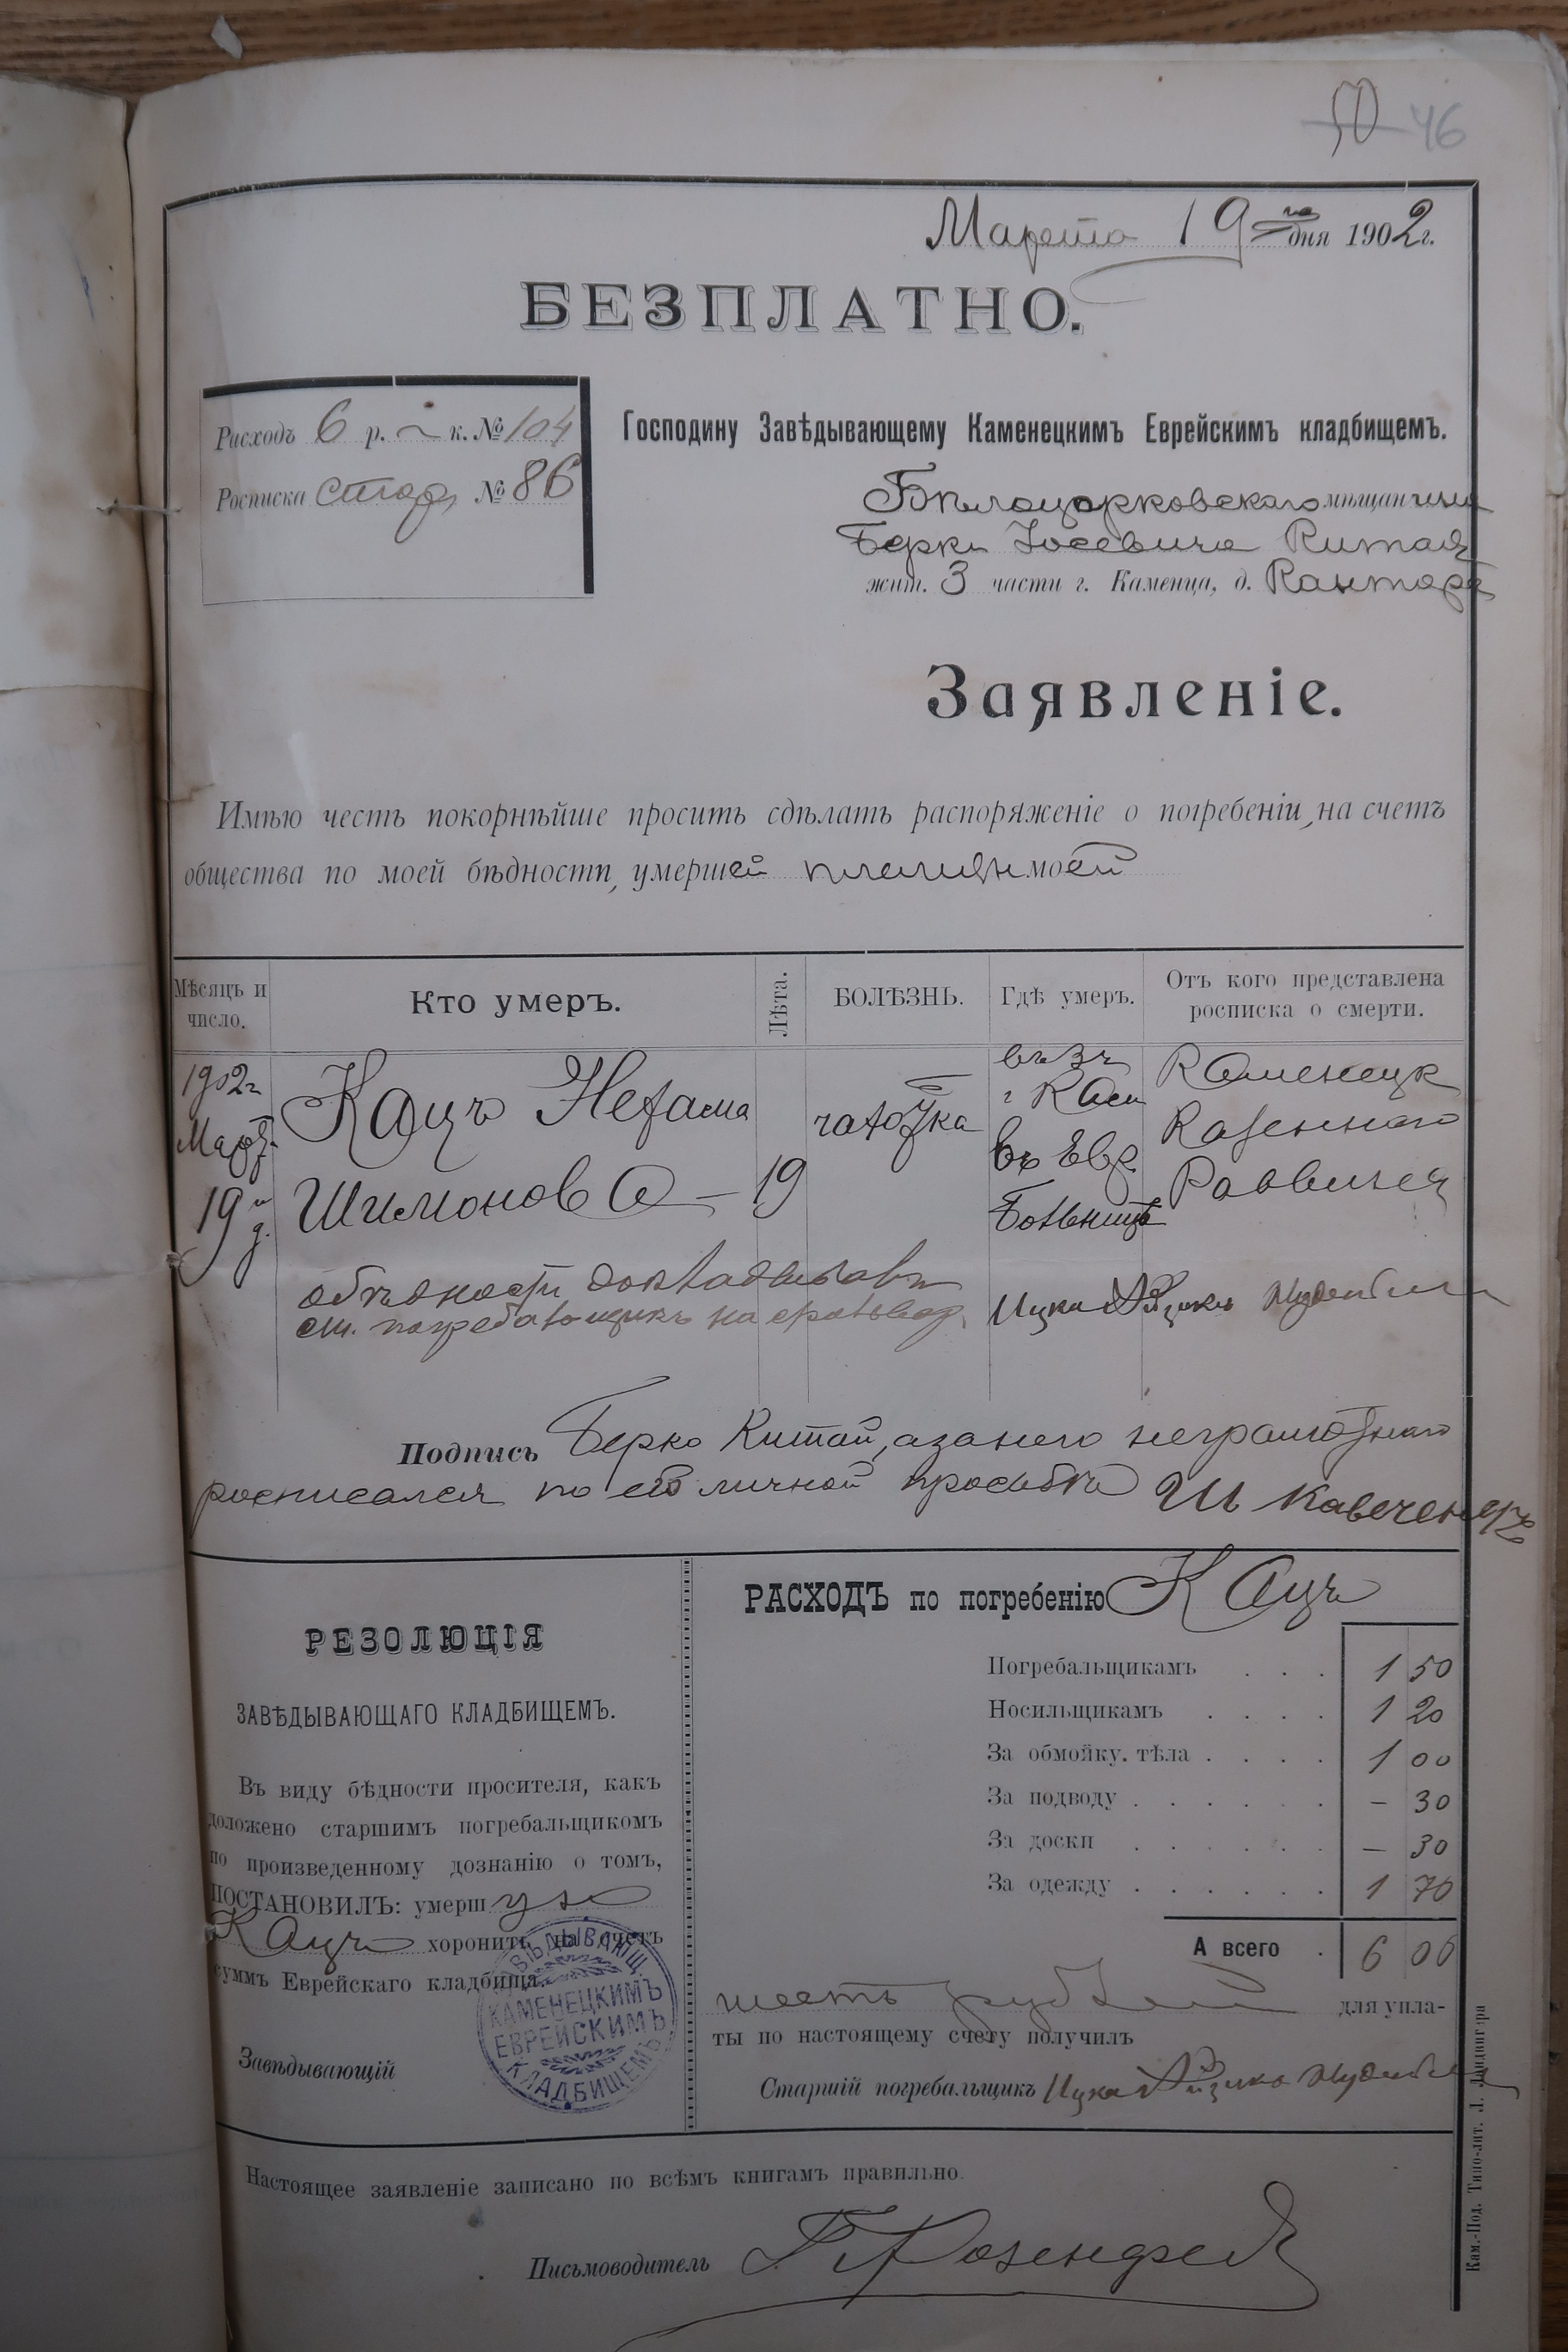 50 46
Марта 19го дня 1902 г.
БЕЗПЛАТНО.
Расходъ 6 р. – к. № 104
Росписка стар. № 86
Господину Завѣдывающему Каменецкимъ Еврейскимъ кладбищемъ.
Бѣлоцерковскаго мѣщанина
Берки Іосевича Китая
жит. 3 части г. Каменца, д. Кантора
Заявленіе.
Имѣю честь покорнѣйше просить сдѣлать распоряженіе о погребеніи, на счетъ
общества по моей бѣдности, умершей племян моей
Мѣсяцъ и число.
Кто умеръ.
Лѣта.
БОЛѢЗНЬ.
Гдѣ умеръ.
Отъ кого представлена росписка о смерти.
1902 г. Кацъ Нехама чахотка въ 3 ч. Каменецк
Март. г. Кам Казеннаго
19 д. Шимонова – 19 въ Евр. Раввина
Больницѣ
обѣдности докладывалъ
ст. погребальщикъ Ицка Айзикъ
Подпись Берко Китай, а за него неграмотнаго
росписался по его личной просьбѣ Ш Кавечекеръ
РЕЗОЛЮЦІЯ
ЗАВѢДЫВАЮЩАГО КЛАДБИЩЕМЪ.
Въ виду бѣдности просителя, какъ
доложено старшимъ погребальщикомъ
по произведенному дознанію о томъ,
ПОСТАНОВИЛЪ: умершую
Кацъ хоронить на счетъ
суммъ Еврейскаго кладбища.
Завѣдывающій
ЗАВѢДЫВАЮЩ.
КАМЕНЕЦКИМЪ
ЕВРЕЙСКИМЪ
КЛАДБИЩЕМЪ
РАСХОДЪ по погребенію Кацъ
Погребальщикамъ . . . 1 50
Носильщикамъ . . . . 1 20
За обмойку. тѣла . . . . 1 00
За подводу . . . . . . – 30
За доски . . . . . . – 30
За одежду . . . . . . 1 70
А всего . 6 00
шесть рублей для упла-
ты по настоящему счету получилъ
Старшій погребальщикъ Ицка Айзикъ
Настоящее заявленіе записано по всѣмъ книгамъ правильно.
Письмоводитель Г. Розенфел
Кам.-Под. Типо-лит. Л. Ландвигера